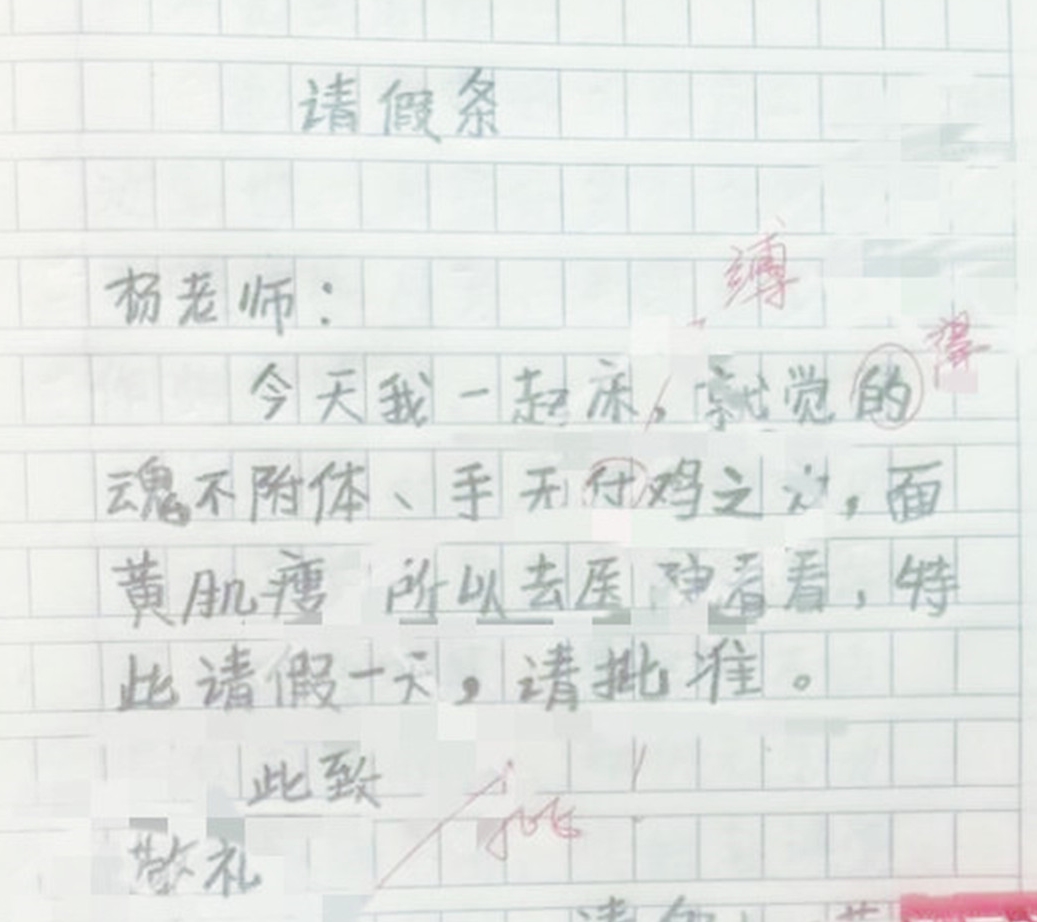 请假条
缚
杨老师：
得
今天我一起床，就觉的
魂不附体、手无付鸡之，面
黄肌瘦 所以去医院看看，特
此请假一天，请批准。
此致
敬礼